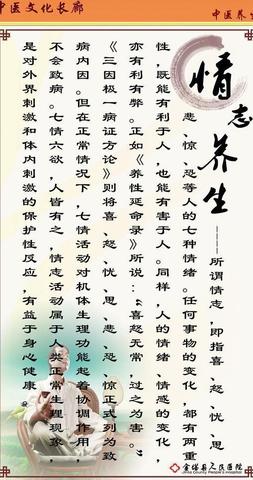 中医文化长廊
中医养
情志养生
——所谓情志，即指喜、怒、忧、思、
悲、惊、恐等人的七种情绪。任何事物的变化，都有两重
性，既能有利于人，也能有害于人。同样，人的情绪、情感的变化，
亦有利有弊。正如《养性延命录》所说：“喜怒无常，过之为害。”
《三因极一病证方论》则将喜、怒、忧、思、悲、恐、惊正式列为致
病内因。但在正常情况下，七情活动对机体生理功能起着协调作用，
不会致病。七情六欲，人皆有之，情志活动属于人类正常生理现象，
是对外界刺激和体内刺激的保护性反应，有益于身心健康。
金塔县人民医院
Jinta County People's Hospital